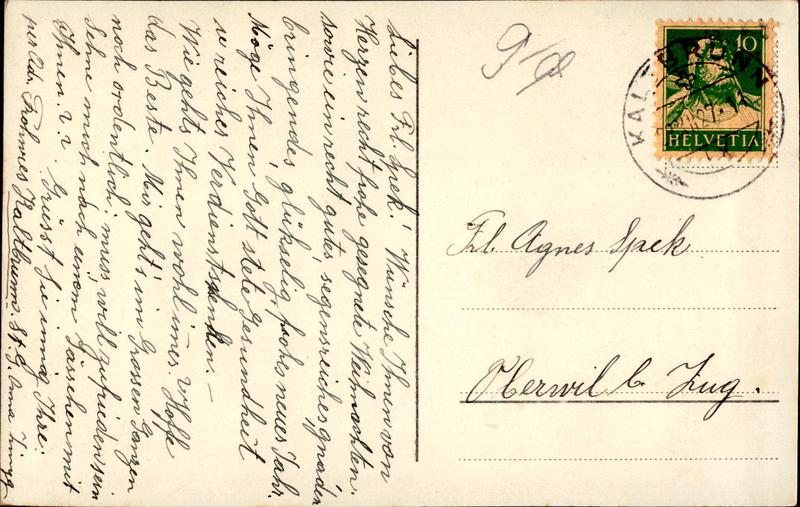 Liebes Frl. Spek! Wünsche Ihnen von
Herzen recht frohe gesegnete Weihnachten.
sowie ein recht gutes, segensreiches, gnaden
bringendes glückselig frohes neues Jahr.
Möge Ihnen Gott stete Gesundheit
u reiches Verdienst schenken. –
Wie gehts Ihnen wohl immer. Hoffe
das Beste. Mir geht's im Grossen Ganzen
noch ordentlich, muss, will zufrieden sein
Sehne mich nach einem Tässchen mit
Ihnen. Grüsst Sie innig Ihre:
per Adr. Frohwies Kaltbrunn. St. G. Anna
Frl. Agnes Spek
Oberwil b. Zug.
KALTBRUNN
27
10
HELVETIA